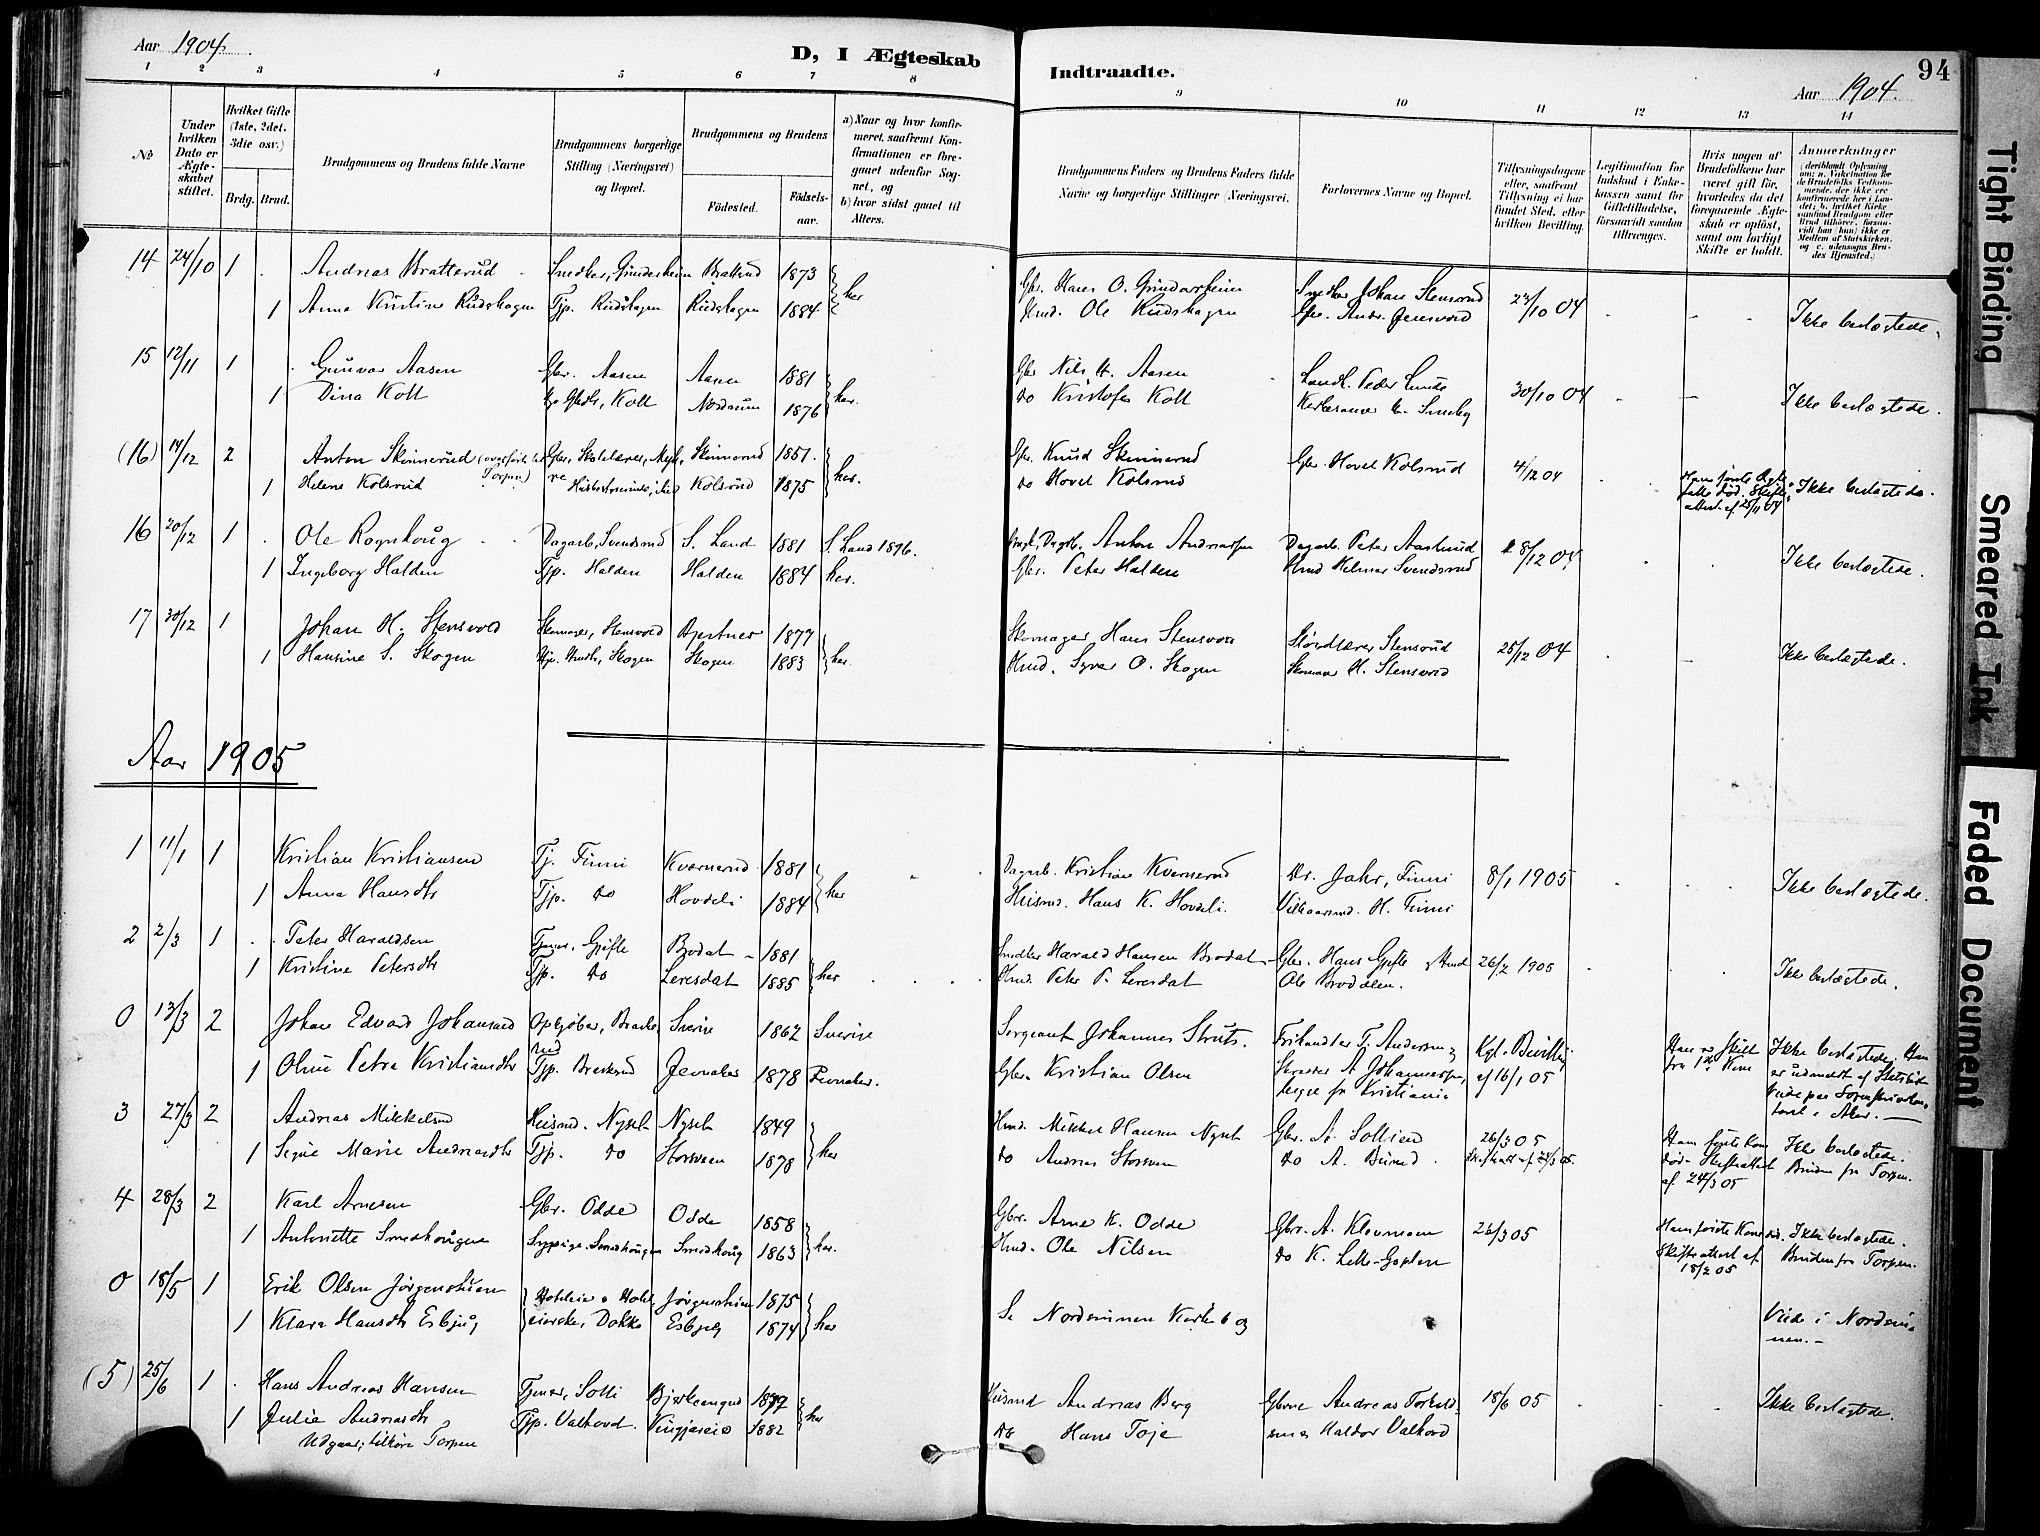 Aar 1904
D, I Ægteskab
Indtraadte.
94
Aar 1904.
1 2 3 4 5 6 7 8 9 10 11 12 13 14
No
Under hvilken Dato er Ægteskabet stiftet.
Hvilket Gifte (1ste, 2det, 3die osv.)
Brdg. Brud.
Brudgommens og Brudens fulde Navne
Brudgommens borgerlige Stilling (Næringsvei) og Bopæl.
Brudgommens og Brudens
Fødested.
Fødselsaar.
a) Naar og hvor konfirmeret, saafremt Konfirmationen er foregaaet udenfor Sognet, og
b) hvor sidst gaaet til Alters.
Brudgommens Faders og Brudens Faders fulde Navne og borgerlige Stillinger (Næringsvei.
Forlovernes Navne og Bopæl.
Tillysningsdagene eller, saafremt Tillysning ei har fundet Sted, efter hvilken Bevilling.
Legitimation for Indskud i Enkekassen samt for Giftetilladelse, forsaavidt saadan tiltrænges.
Hvis nogen af Brudefolkene har været gift før, hvorledes da det foregaaende Ægteskab er opløst, samt om lovligt Skifte er holdt.
Anmerkninger
(deriblandt Oplysning om: a. Vakcination for de Brudefolks Vedkommende, der ikke ere konfirmerede her i Landet; b. hvilket Kirkesamfund Brudgom eller Brud tilhører, forsaavidt han (hun) ikke er Medlem af Statskirken, og c. udensogns Brudes Hjemsted.)
14 24/10 1 Andreas Bratterud Snedker, Grindarheim Bratterud 1873 her Gbr. Hans O. Grindarheim Snedker Johan Stensrud 23/10 04
1 Anna Kristine Rudshagen Tjp. Rudshagen Rudshagen 1884 Hmd. Ole Rudshagen Gbr. Andr. Jensvold Ikke beslægtede.
15 12/11 1 Gunvar Aasen Gbr. Aasen Aasen 1881 her. Gbr Nils H. Aasen Landh. Peder Lunde 30/10 04
1 Dina Kolt Kolt Nordrum 1876 do Kristofer Kolt Kirkesanger Smeby Ikke beslægtede.
(16) 14/12 2 Anton Skinnerud (overført til Torpen) Gbr., Skolelærer, Skinnerud 1851. her. Gbr. Knud Skinnerud Gbr. Hovel Kolsrud 4/12 04 Hans første Ægtefælle død. Skifteattest af 25/11 04
1 Helene Kolsrud Kolsrud 1875 do Hovel Kolsrud Ikke beslægtede.
16 20/12 1 Ole Rognhaug Dagarb. Svendsrud S. Land 1881 S. Land 1896. Dagarb. Anton Andreassen Dagarb. Peter Aaslund 8/12 04
1 Ingeborg Halden Tjp. Halden Halden 1884 her. Gbr. Peter Halden Hmd Helmer Svendsrud Ikke beslægtede.
17 30/12 1 Johan H. Stensvold Skomager, Stensvold 1877 her. Skomager Hans Stensvold Stensrud 25/12 04
1 Hansine S. Skogen Skogen Skogen 1883 Hmd. Syver O. Skogen Skomager H. Stensvold Ikke beslægtede.
Aar 1905
1 11/1 1 Kristian Kristiansen Tj. Finni Kvernerud 1881 her Dagarb. Kristian Kvernerud Dr. Jahr, Finni 8/1 1905
1 Anna Hansdtr Tjp. do Hovdeli 1884 Husmd. Hans K. Hovdeli. H. Finni Ikke beslægtede.
2 2/3 1 Peter Haraldsen Tjener, Gjefle Brodal 1881 her Snedker Harald Hansen Brodal Gbr. Hans Gjefle Hmd 26/2 1905
1 Kristine Petersdtr Tjp. do Leresdal 1885 Hmd. Peter P. Leresdal Ole Brodalen. Ikke beslægtede.
0 13/3 2 Johan Edvard Johansen Opkjøber, Brækkerud Sverige 1862 Sverige Sergeant Johannes Struts. Frihandler T. Andersen Kgl. Bevilling af 16/1 05 Han er skilt fra 1ste Kone Ikke beslægtede. Han er udmeldt af Statskirken
1 Oline Petra Kristiansdtr Tjp. Brækkerud Jevnaker 1878 Jevnaker. Gbr. Kristian Olsen A. Johannesen, begge fr. Kristiania
3 27/3 2 Andreas Mikkelsen Husmd. Nyset Nyset 1849 her Hmd. Mikkel Hansen Nyset Gbr. A. Sollien 26/3 05 Hans første Kone død. Skifteattest af 24/3 05 Ikke beslægtede. Bruden fra Torpen.
1 Signe Marie Andreasdtr Tjp. do Storsveen 1878 do Andreas Storsveen do A. Skifteatt af 24/3 05.
4 28/3 2 Karl Arnesen Gbr. Odde Odde 1858 her. Gbr. Arne K. Odde Gbr. A. Klevmoen 26/3 05 Hans første Kone død. Skifteattest af 18/2 05 Ikke beslægtede. Bruden fra Torpen.
1 Antonette Smedhaugen Sypige. Smedhaugen Smedhaug 1863 Hmd. Ole Nilsen do K.
0 18/5 1 Erik Olsen Jørgenstuen Jørgenstuen 1875 her Se Nordsinnen Kirkebog
1 Klara Hansdtr Esbjug Dokka Esbjug 1874 Viede i Nordsinnen.
(5) 25/6 1 Hans Andreas Hansen Tjener, Solli 1877 her Husmd Andreas Berg Gbrne Andreas 18/6 05 Ikke beslægtede.
1 Julie Andreasdtr Tjp. Valhovd 1882 do Hans Toje Haldor Valhovd
Udgaar, tilhører Torpen
Tight Binding
Smeared Ink
Faded Document